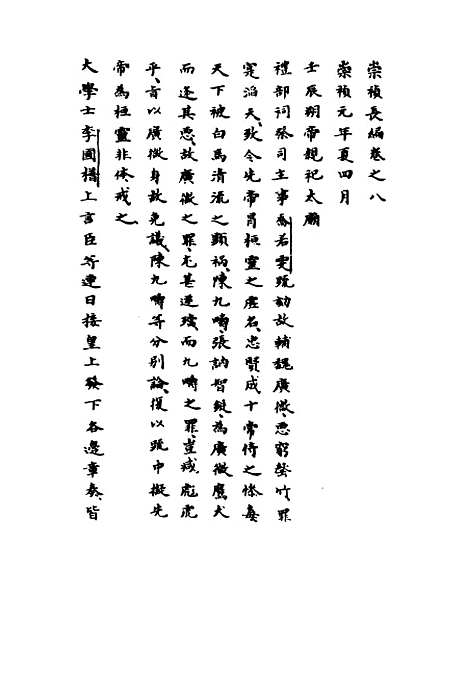 崇禎長編卷之八
崇禎元年夏四月
壬辰朔帝親祀太廟
禮部祠祭司主事喬若雯疏劾故輔魏廣微惡窮罄竹罪
寔滔天致令先帝冒桓靈之虛名忠賢成十常侍之慘毒
天下被白馬清流之顯禍陳九疇張訥智鋌為廣微鷹犬
而逐其惡故廣微之罪尤甚逆璫而九疇之罪豈減彪虎
乎旨以廣微身故免議陳九疇等分別論復以疏中擬先
帝為桓靈非倫戒之
大學士李國𣚴上言臣等連日接皇上發下各邊章奏皆